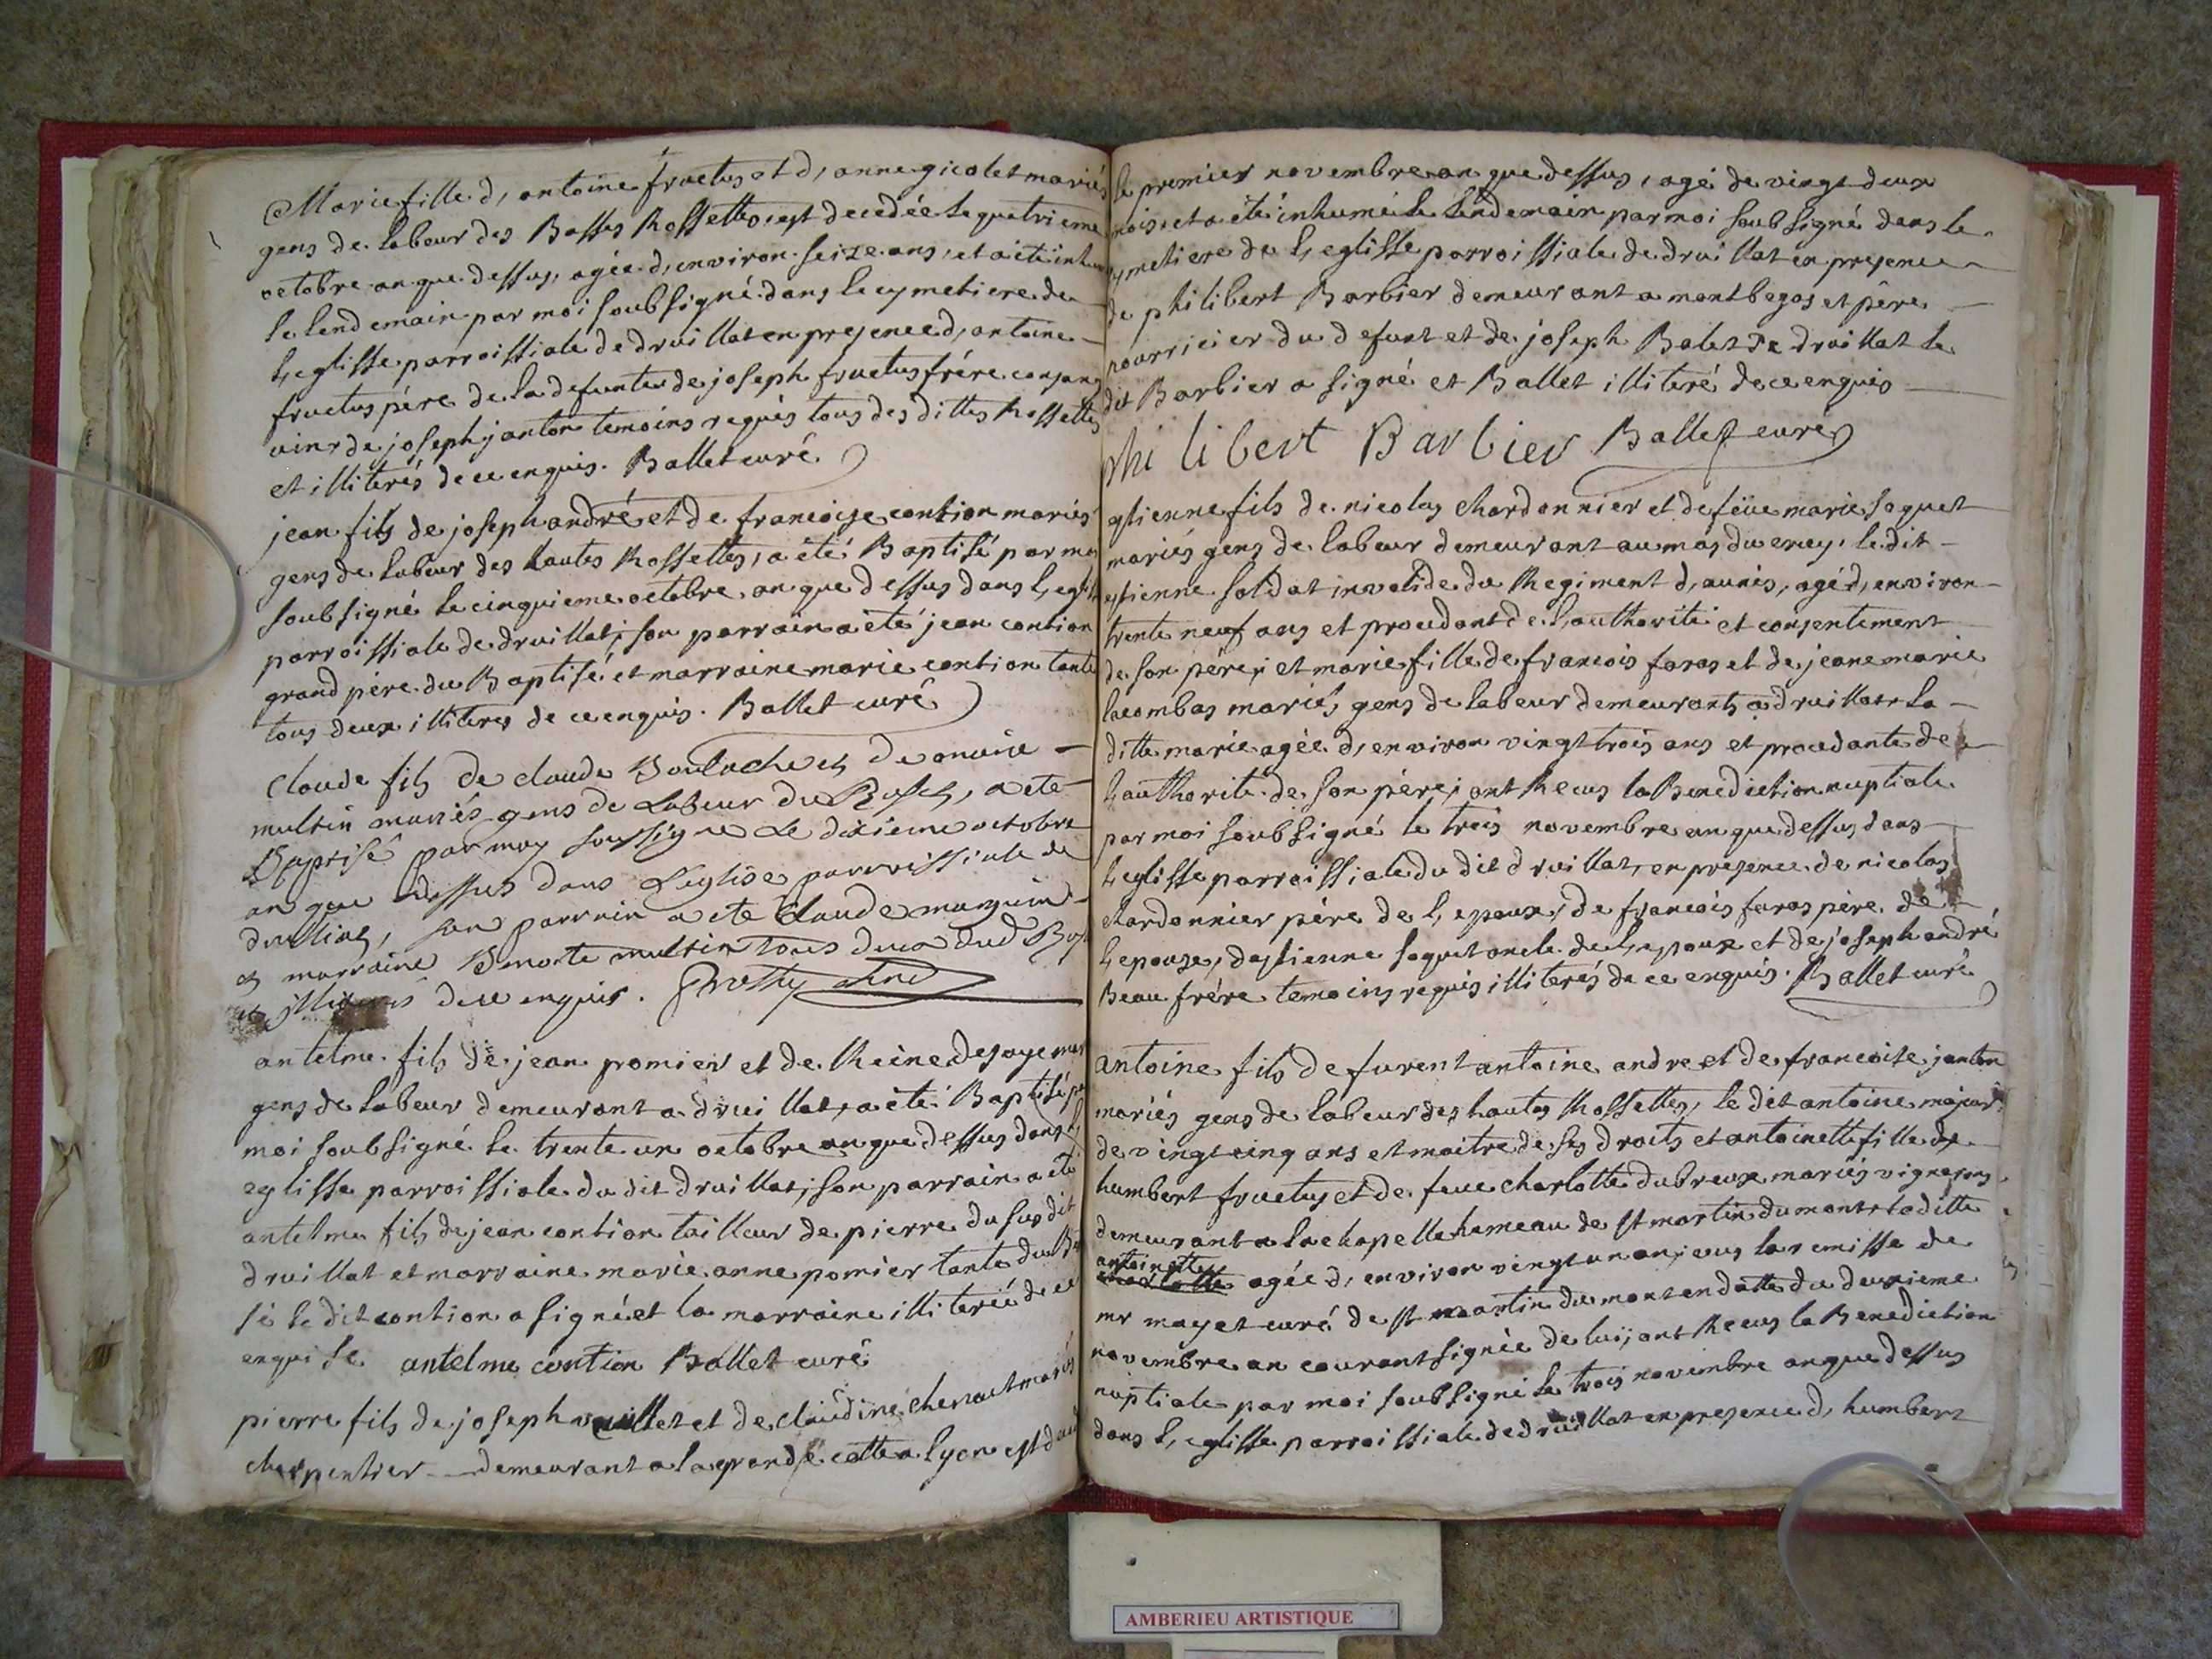 Marie fille d, antoine fructus et d, anne gicolet mariés
gens de labeur des Basses Rossettes, est decedée le quatrieme
octobre an que dessus, agée d, environ seize ans, et a été inhu
le lendemain par moi soubsigné dans le cymetiere de
L, eglisse parroissiale de druillat en presence d, antoine
fructus père de la defunte de joseph fructus frére consan
uin et de joseph janton temoins requis tous des dittes Rossettes
et illiterés de ce enquis. Ballet curé
jean fils de joseph andré et de francoise contion mariés
gens de labeur des hautes Rossettes, a été Baptisé par moi
soubsigné le cinquieme octobre an que dessus dans L, eglis
parroissiale de druillat, son parrain a été jean contion
grand père du Baptisé et marraine marie contion tante
tous deux illiteres de ce enquis. Ballet curé
Claude fils de claude et de marie
multin mariés gens de Labeur du, a ete
Baptisé par moy soussigne Le dixieme octobre
an que dessus dans L'eglise parroissiale de
druillat, son parrain a ete Claude manguin
et marraine Benoite multin tous deux dud
et illiterés de ce enquis.
antelme fils de jean promier et de Reine desaye mar
gens de labeur demeurant a druillat, a été Baptisé pa
moi soubsigné le trente un octobre an que dessus dans l,
eglisse parroissiale du dit druillat, son parrain a été
antelme fils de jean contion tailleur de pierre du sus dit
druillat et marraine marie anne pomier tante du Ba
sé le dit contion a signé et la marraine illiterée de ce
enquise antelme contion Ballet curé
pierre fils de joseph vuillet et de claudine mariés
charpentier demeurant a la grande cotte a Lyon est
le premier novembre an que dessus, agé de vingt deux
mois, et a été inhumé le lendemain par moi soubsigné dans le
cymetiere de L, eglisse parroissiale de druillat en presence
de philibert Barbier demeurant a montbegos et père
nourricier du defunt et de joseph Balet de druillat le
dit Barbier a signé et Ballet illiteré de ce enquis
phi libert Barbier Ballet curé
etienne fils de nicolas chardonnier et de feüe marie soquet
mariés gens de labeur demeurant au mas du crey, le dit
estienne soldat invalide du Regiment d, aunis, agé d, environ
trente neuf ans et procedant de L, authorité et consentement
de son père, et marie fille de francois faras et de jeane marie
lacombas mariés gens de labeur demeurants a druillat la
ditte marie agée d, environ vingt trois ans et procedante de
L, authorite de son père, ont Recus la Benediction nuptiale
par moi soubsigné le trois novembre an que dessus dans
L, eglisse parroissiale du dit druillat, en presence de nicolas
chardonnier père de l, epoux, de francois faras père de
L, epouse, d'estienne soquet oncle de L, epoux et de joseph andré
Beau frére temoins requis illiterés de ce enquis. Ballet curé
antoine fils de furent antoine andre et de francoise janton
mariés gens de labeur des hautes Rossettes, le dit antoine majeur
de vingt cinq ans et maitre de ses droits et antoinette fille de
humbert fructus et de feue charlotte dubreux mariés vignerons
demeurant a la chapelle hameau de st martin du mont, la ditte
antoinette
agée d, environ vingt un an, veus la remisse de
mr mayet curé de st martin du mont en datte du deuxieme
novembre an courant signée de lui, ont Recus la Benediction
nuptiale par moi soubsigné le trois novembre an que dessus
dans L, eglisse parroissiale de druillat en presence d, humbert
AMBERIEU ARTISTIQUE